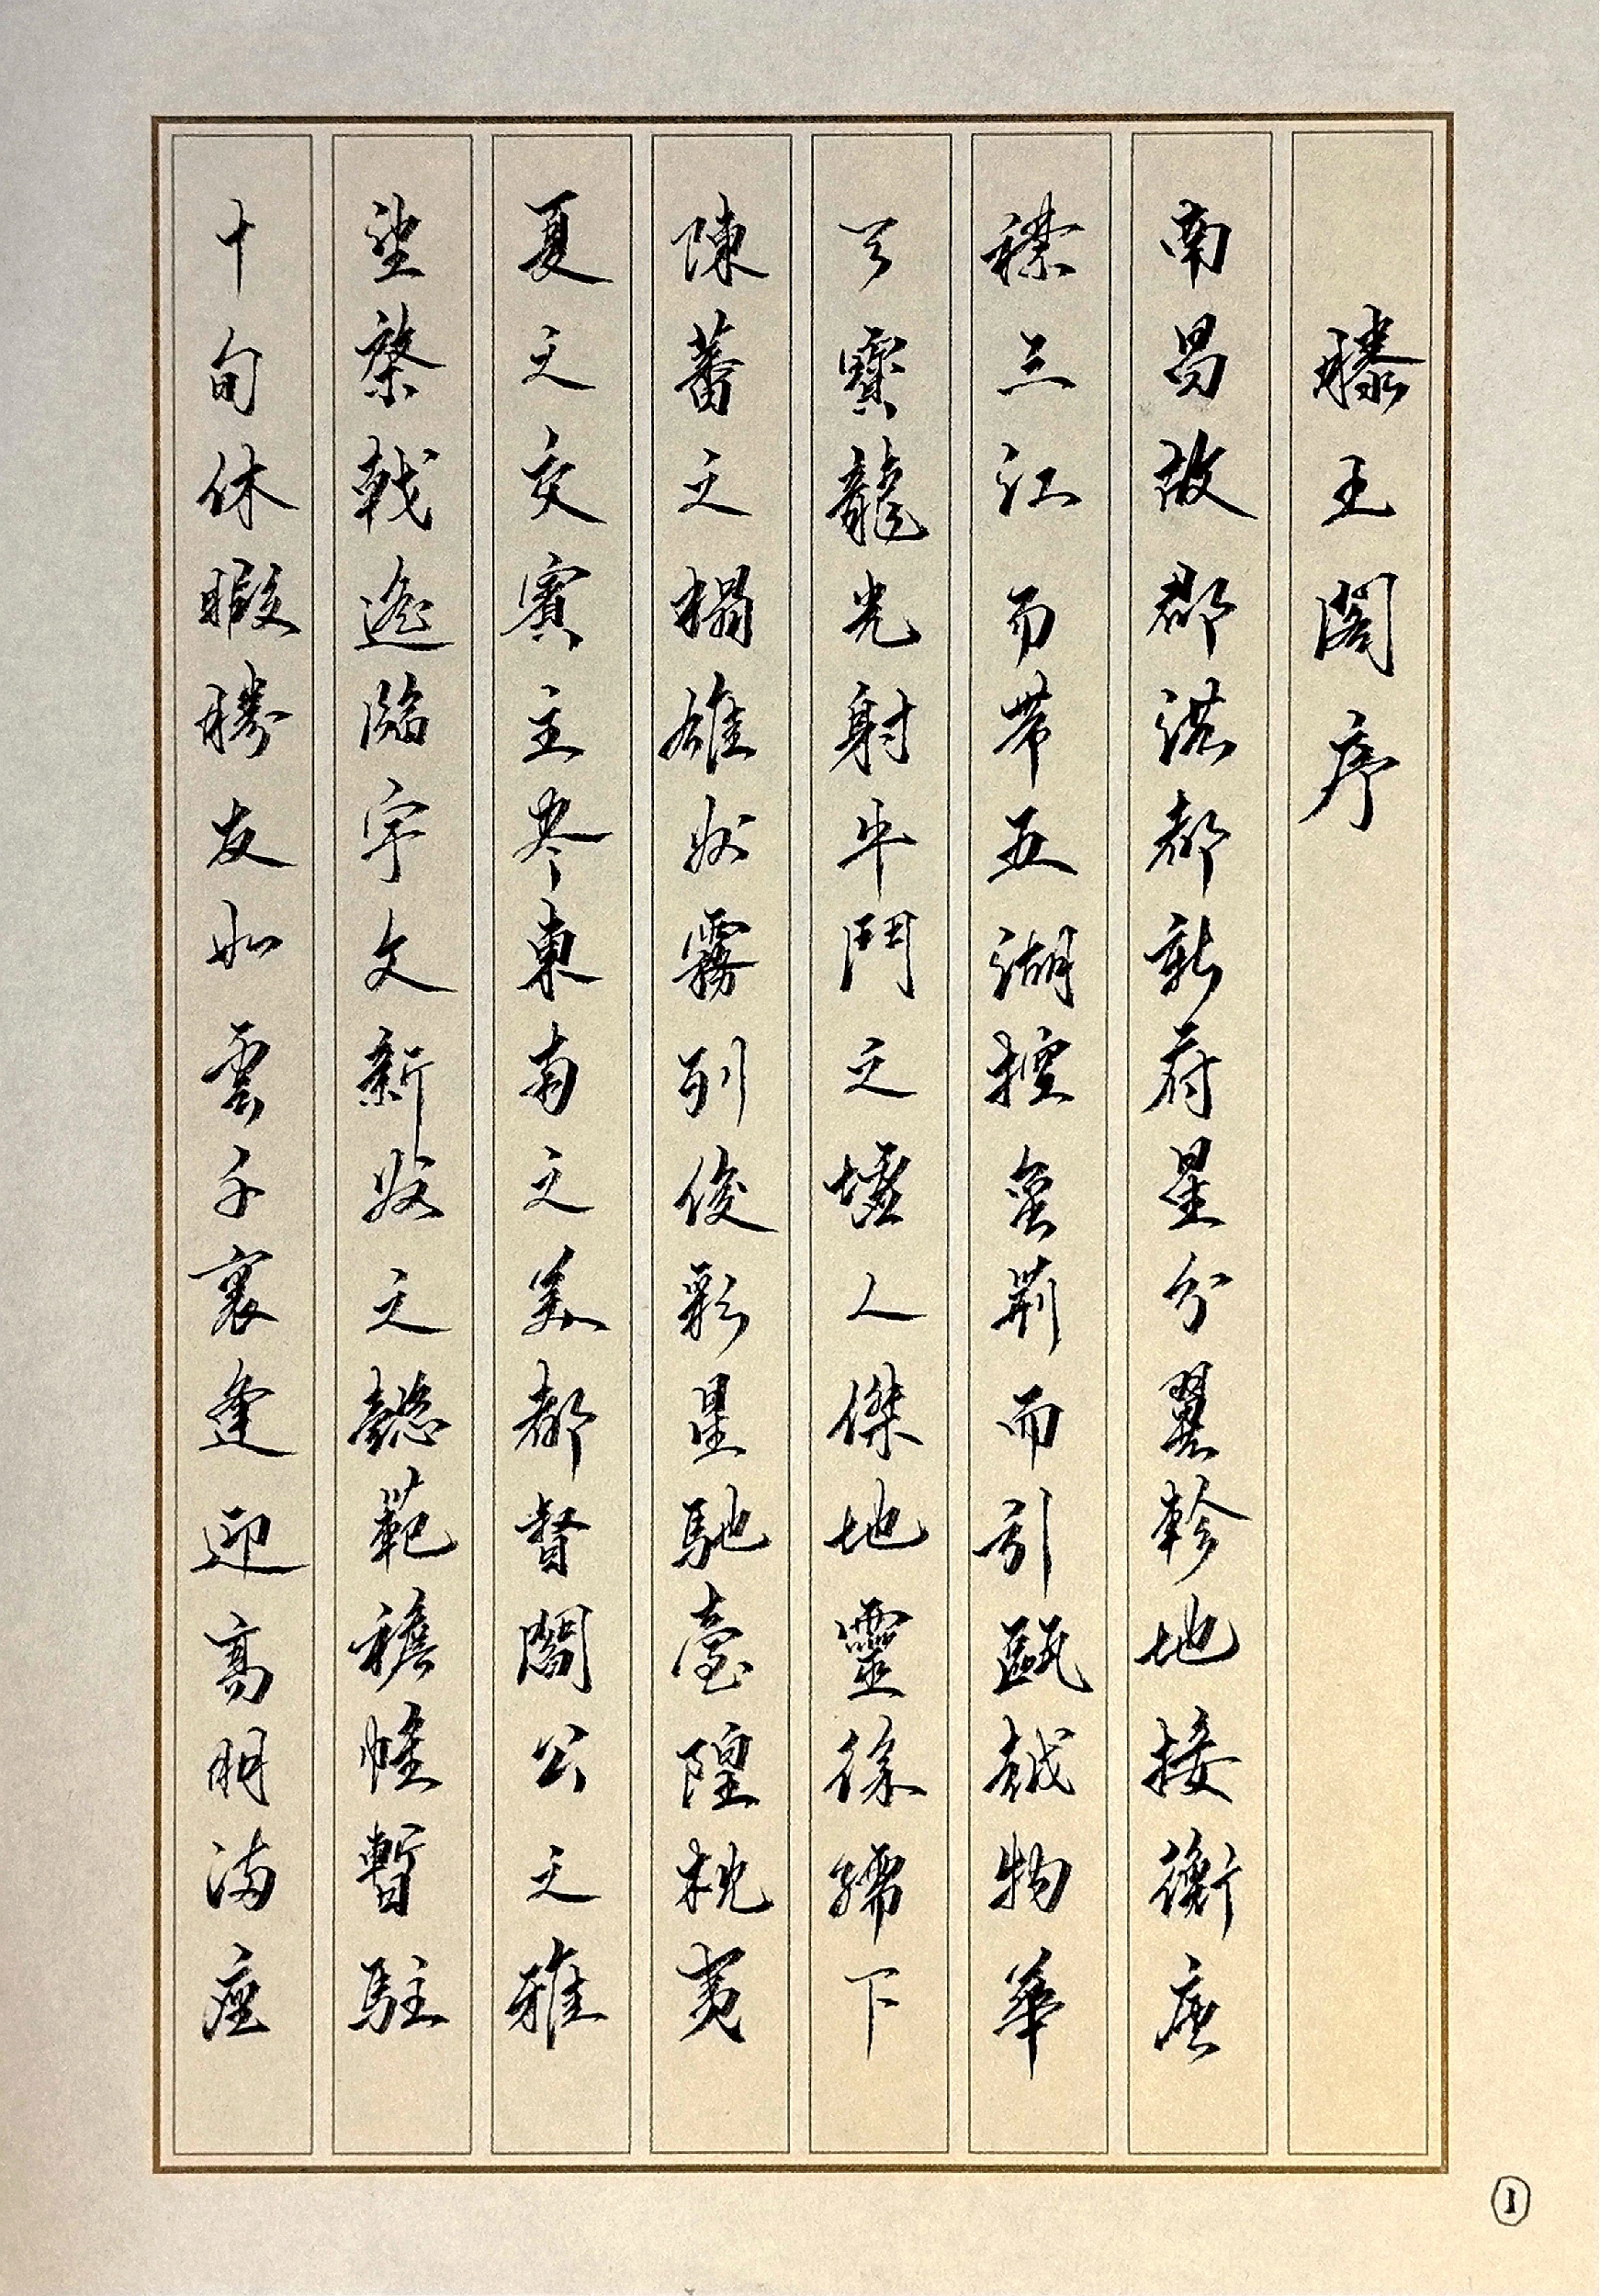 滕王閣序
南昌故郡洪都新府星分翼軫地接衡廬
襟三江而帶五湖控蠻荊而引甌越物華
天寶龍光射牛鬥之墟人傑地靈徐孺下
陳蕃之榻雄州霧列俊彩星馳臺隍枕夷
夏之交賓主尽東南之美都督閻公之雅
望棨戟遙臨宇文新州之懿範襜帷暫駐
十旬休暇勝友如雲千裏逢迎高明滿座
1